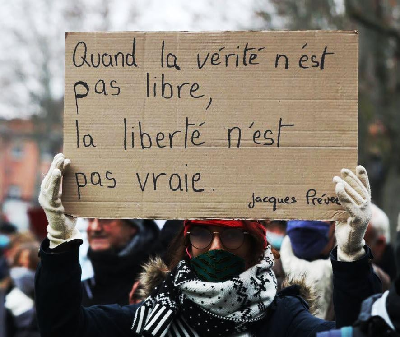 Quand la vérité n'est
pas libre,
la liberté n'est
pas vraie.
Jacques Préver